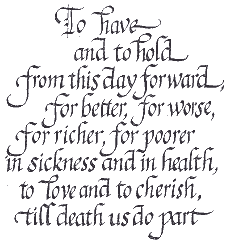 To have
and to hold
from this day forward,
for better, for worse,
for richer, for poorer
in sickness and in health,
to love and to cherish,
till death us do part